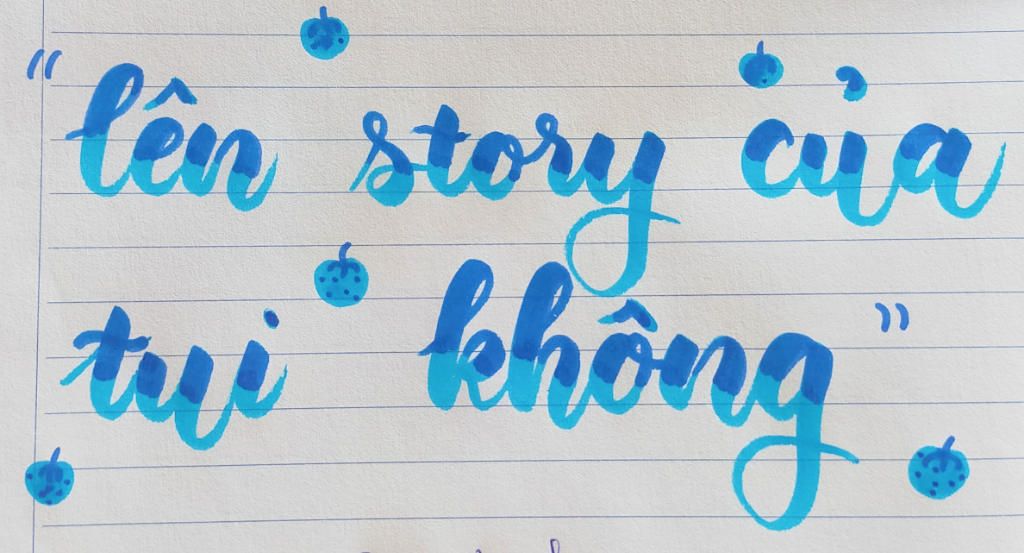 “lên story của
tui không”